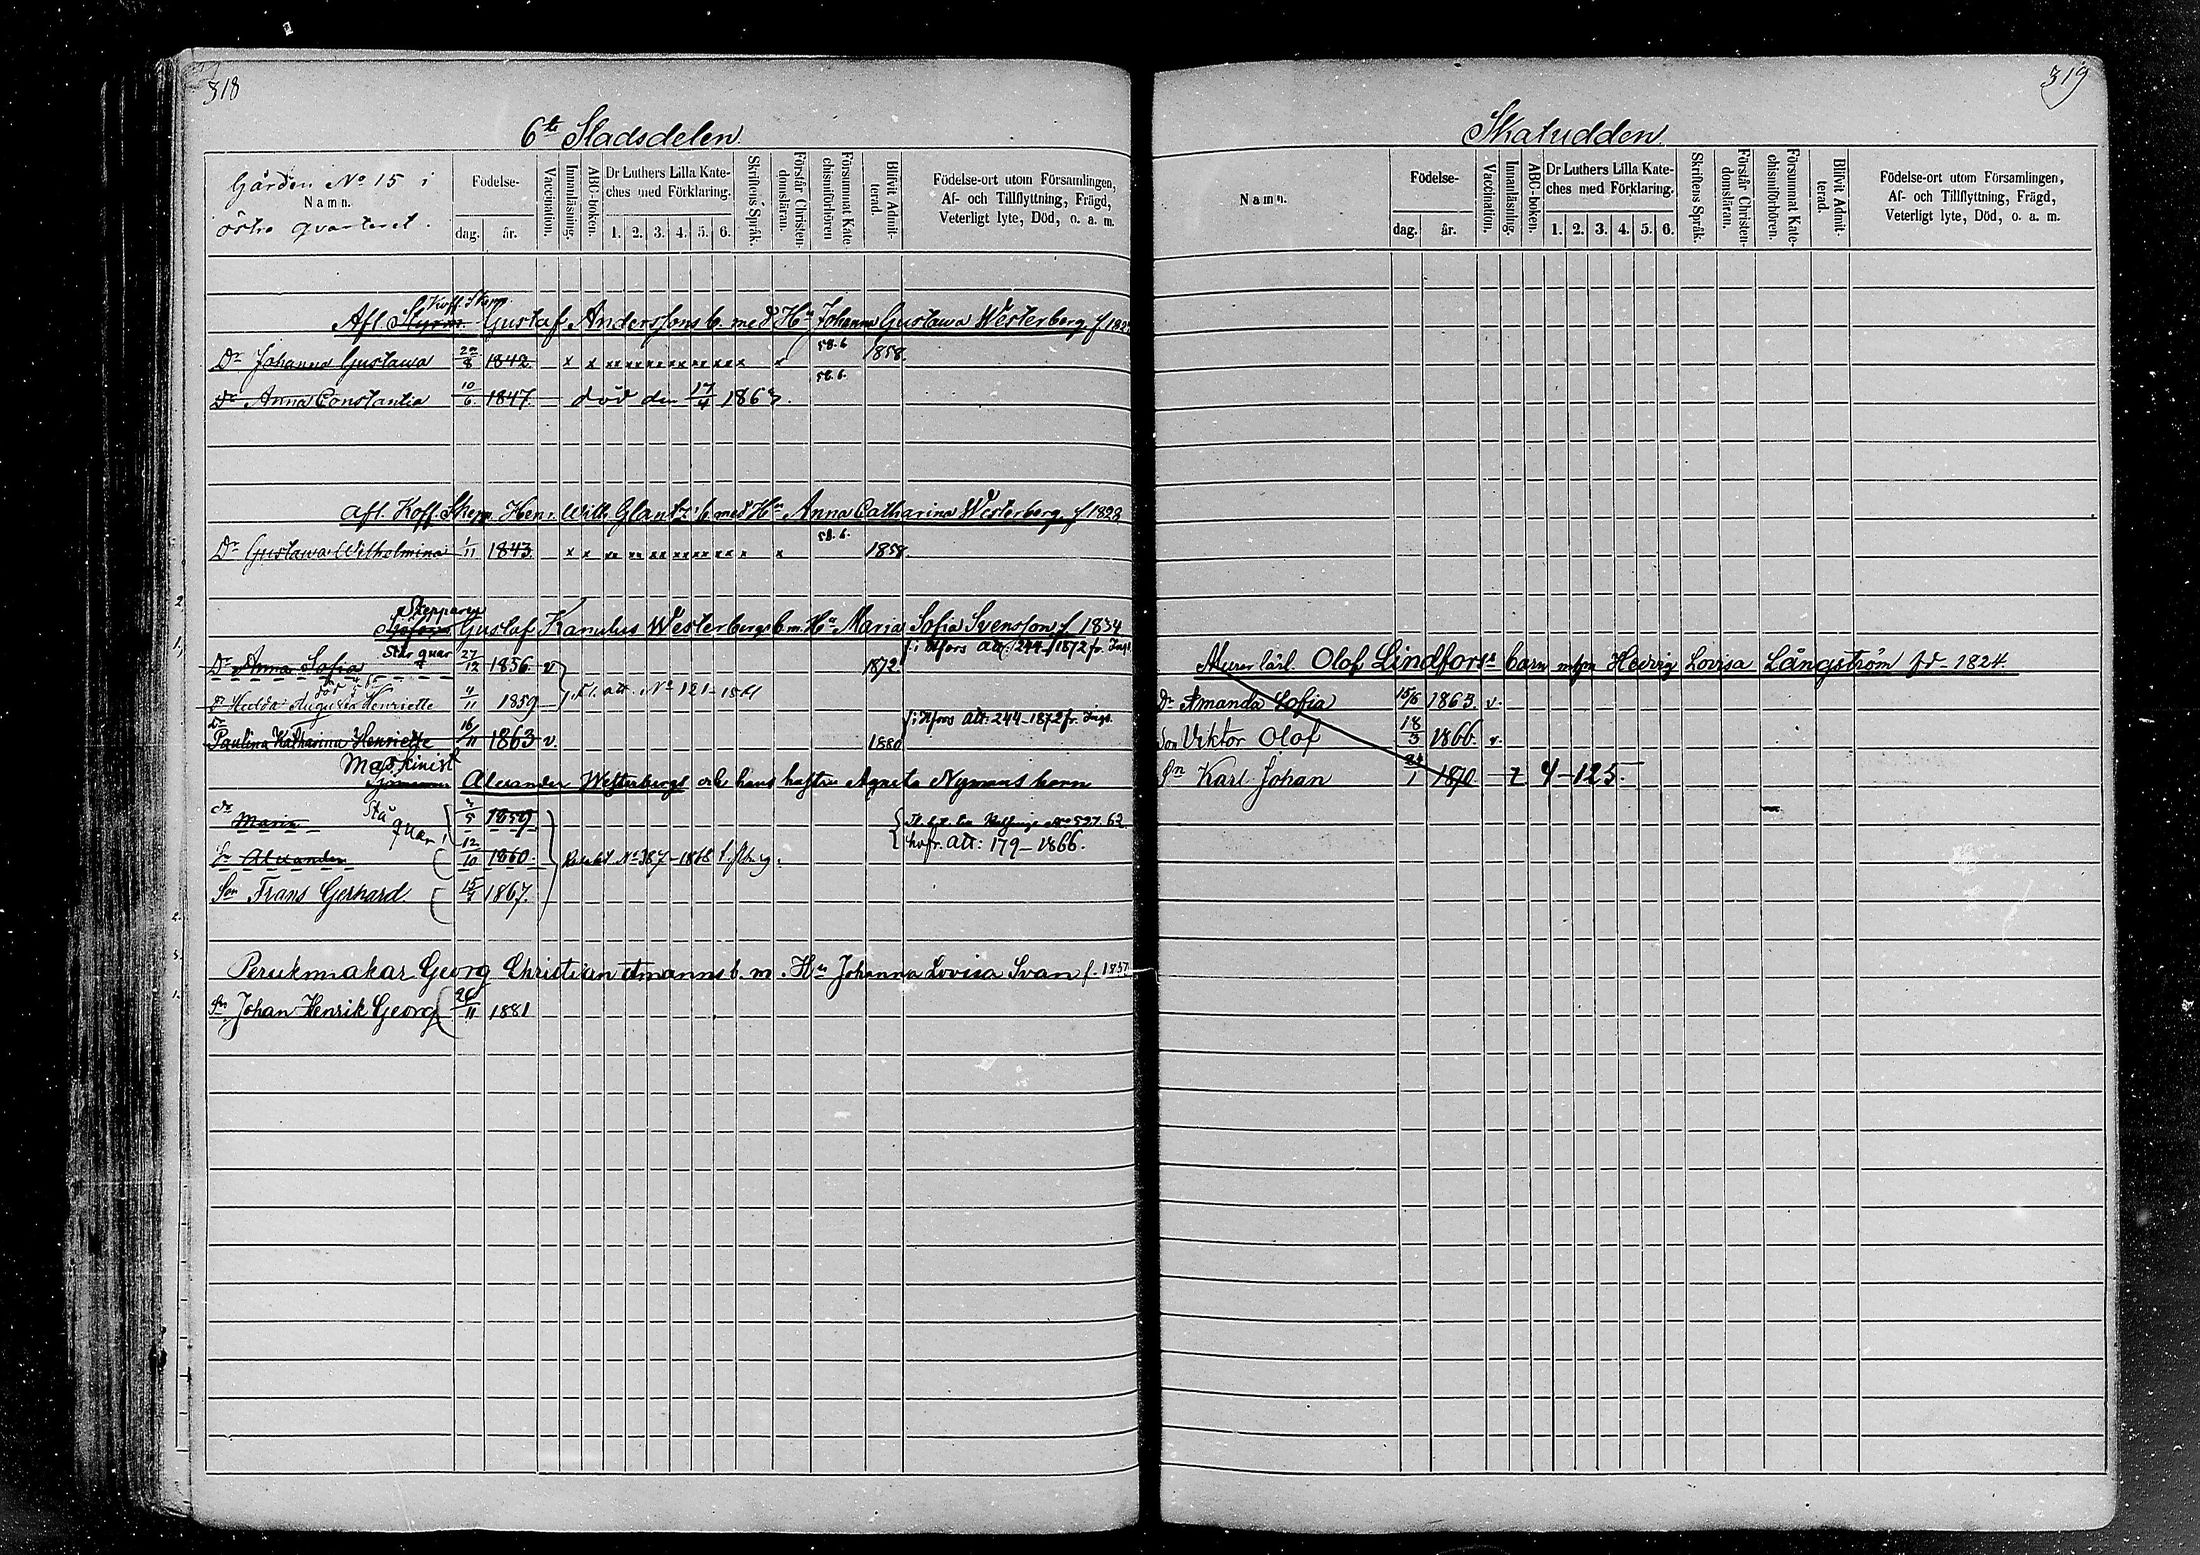 318
6te Stadsdelen.
Gården No 15 i
Namn.
östra qvarteret.
Födelse-
dag. år.
Vaccination.
Innanläsning.
ABC-boken.
Dr Luthers Lilla Kate-
ches med Förklaring.
1. 2. 3. 4. 5. 6.
Skriftens Språk.
Förstår Christen-
domsläran.
Försummat Kate
chismiförhören
Blifvit Admit-
terad.
Födelse-ort utom Församlingen,
Af- och Tillflyttning, Frägd,
Veterligt lyte, Död, o. a. m.
Koff. Skepp.
Afl. Styrm. Gustaf Anderssons b. med Hu Johanna Gustawa Westerberg f 182
58.6
Dr Johanna Gustawa 8 1842 x x xx xx xx xx xx xx x x 1858.
58.6.
Dr Anna Constantia 10/6 1847 död den 17/4 1863.
Afl. Koff. Skepp. Henr. Wilh. Glantz' b. med Hu Anna Catharina Westerberg f 1823
58.6.
Dr Gustawa Wilhelmina 1/11 1843 x x xx xx xx xx xx xx x x 1858.
2
Skepparen
Gustaf Kanutus Westerbergs b. m. Hu Maria Sofia Svensson f 1834
Står quar
f. i Hfors att. 244-1872 fr. Ings.
Dr Anna Sofia 27/12 1856 v 1872.
död
Dr Hulda Augusta Henriette 4/11 1859 Fl. att. No 121-
f. i Hfors att: 244-1872 fr. Ings.
Dr
Paulina Katharina Henriette 16/11 1863 v. 1880
Maskinist
Alexander Westerbergs och hans hustru Agneta Nymans barn
dr Maria Stå quar 5 1859 No 597. 62
Sn Alexander 12/10 1860. No 387-1868 hofr. att: 179-1866.
Son Frans Gerhard. 1867.
2.
Perukmakar Georg Christian b. m. Hu Johanna Lovisa Svan f. 1857
1.
Sn Johan Henrik Georg 26/11 1881
319
Skatudden.
Namn.
Födelse-
dag. år.
Vaccination.
Innanläsning.
ABC-boken.
Dr Luthers Lilla Kate-
ches med Förklaring.
1. 2. 3. 4. 5. 6.
Skriftens Språk.
Förstår Christen-
domsläran.
Försummat Kate-
chismiförhören.
Blifvit Admit-
terad.
Födelse-ort utom Församlingen,
Af- och Tillflyttning, Frägd,
Veterligt lyte, Död, o. a. m.
Murer lärl. Olof Lindfors's barn m. Hedvig Lovisa Långström fd. 1824.
Dr Amanda Sofia 15/6 1863. v.
Son Viktor Olof 18/3 1866. v.
Sn Karl Johan 24/1 1870 4-125.